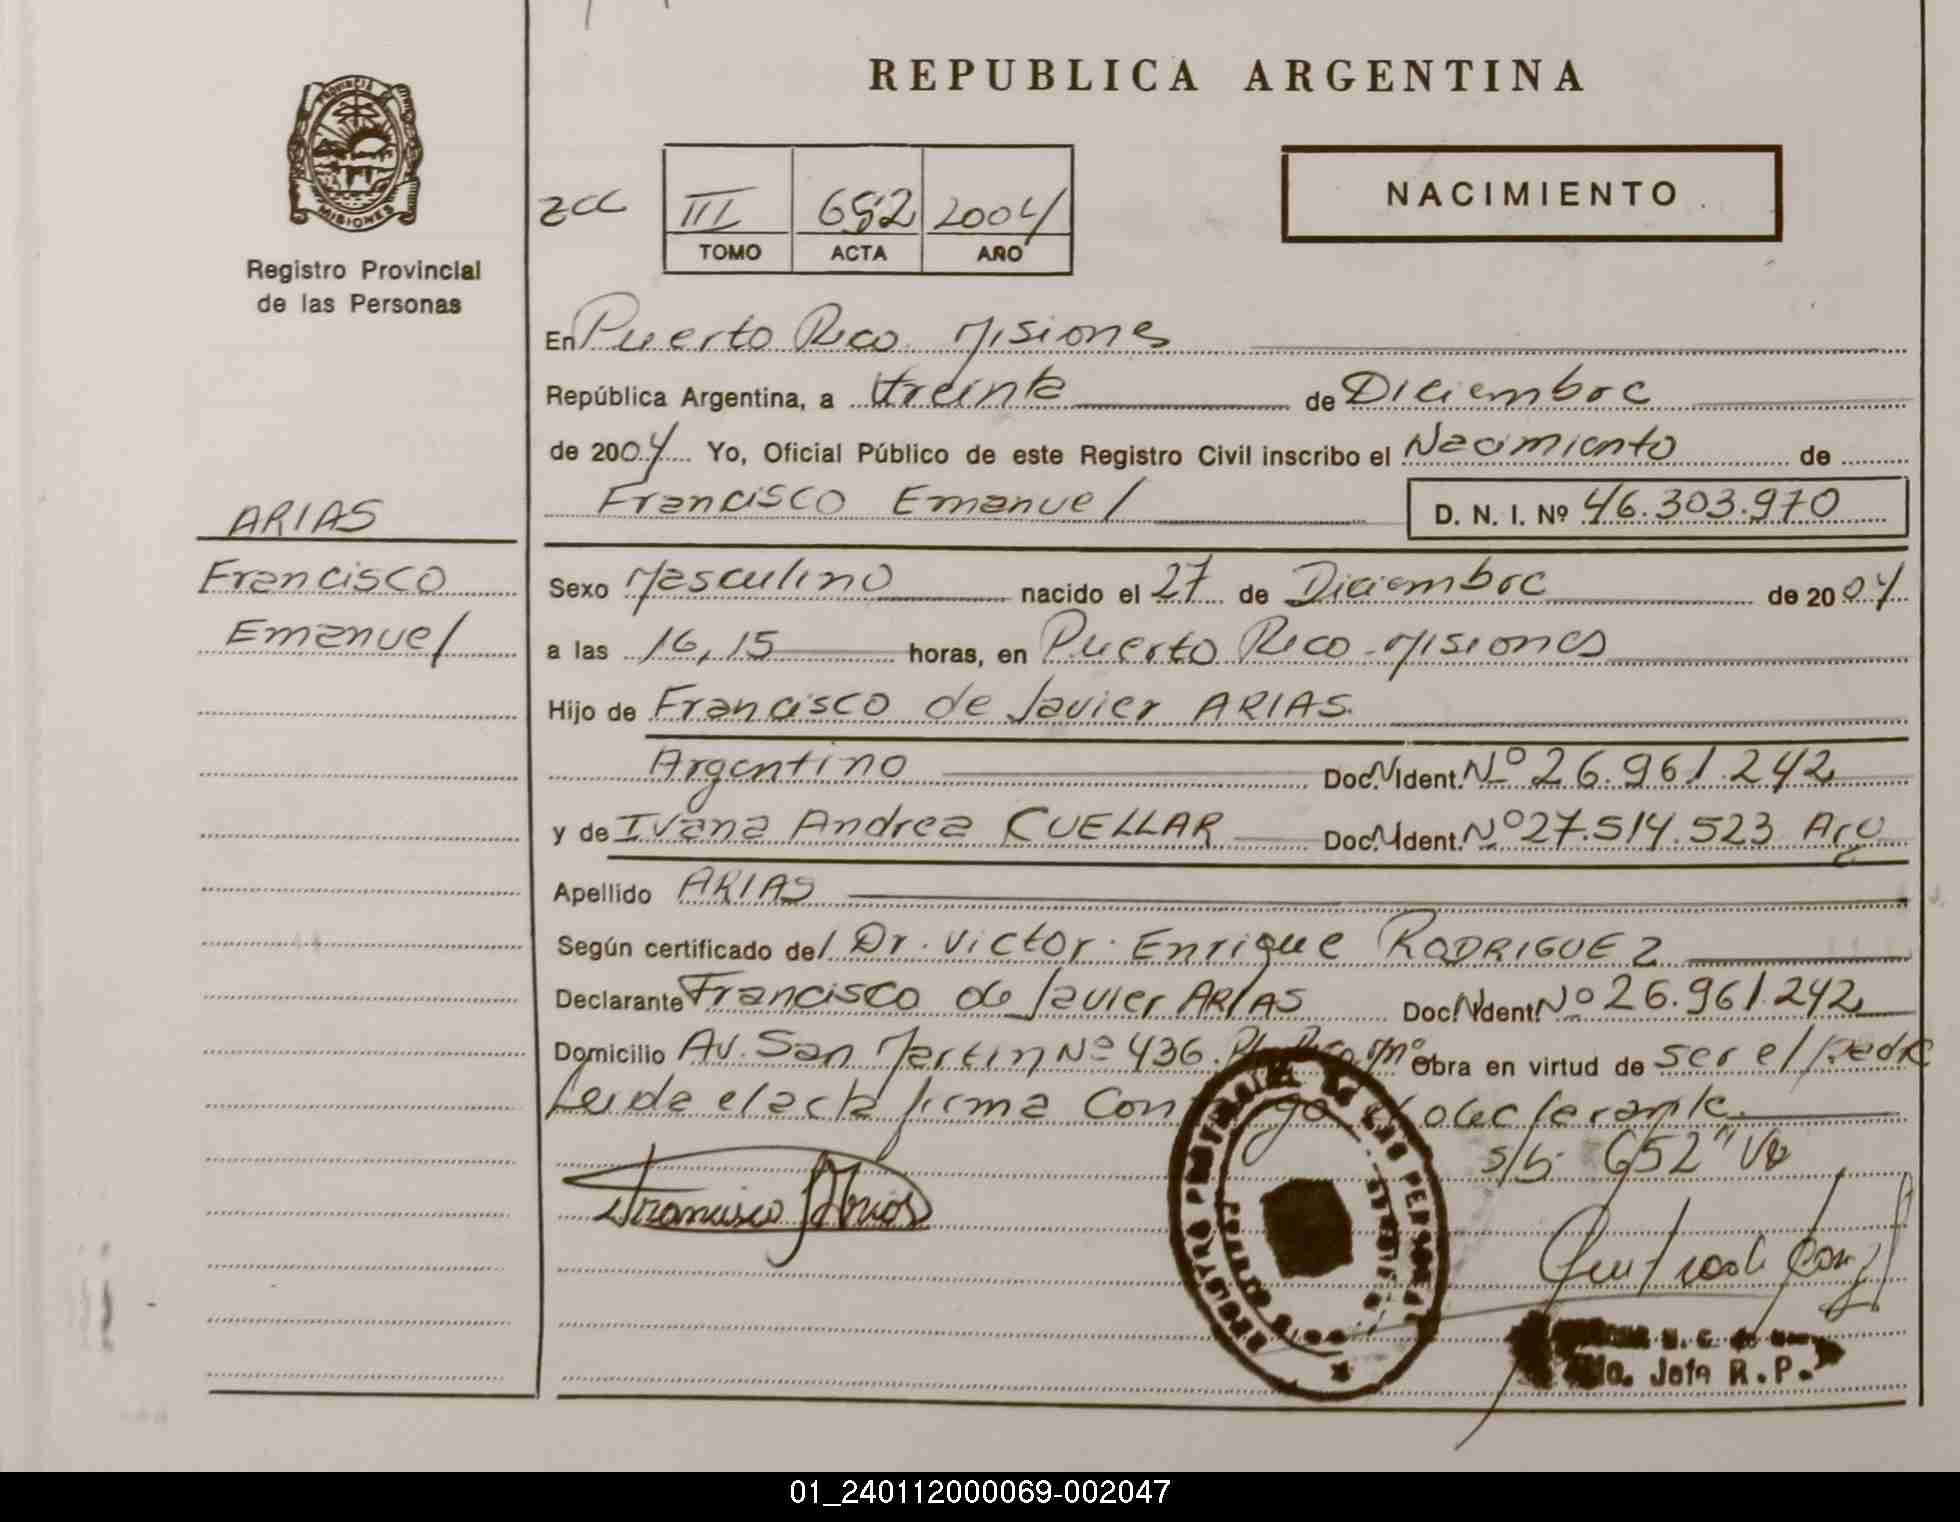 REPUBLICA ARGENTINA
PROVINCIA DE
MISIONES
Registro Provincial
de las Personas
NACIMIENTO
III 652 2004
TOMO ACTA AÑO
En Puerto Rico Misiones
República Argentina, a treinta de Diciembre
de 2004 Yo, Oficial Público de este Registro Civil inscribo el Nacimiento de
Francisco Emanuel D. N. I. Nº 46.303.970
ARIAS
Francisco
Emanuel
Sexo Masculino nacido el 27 de Diciembre de 2004
a las 16,15 horas, en Puerto Rico - Misiones
Hijo de Francisco de Javier ARIAS
Argentino Doc. N Ident. Nº 26.961.242
y de Ivana Andrea CUELLAR Doc. N Ident. Nº 27.514.523 Arg
Apellido ARIAS
Según certificado del Dr. Victor Enrique RODRIGUEZ
Declarante Francisco de Javier ARIAS Doc. N Ident. Nº 26.961.242
Domicilio Av. San Martin Nº 436. Pto Rico Mnes Obra en virtud de ser el padre
Leida el acta firma conmigo el declarante.
s/b: 652" Ve
Francisco J Arias
REGISTRO PROVINCIAL DE LAS PERSONAS
MISIONES
Jefa R.P.
01_240112000069-002047